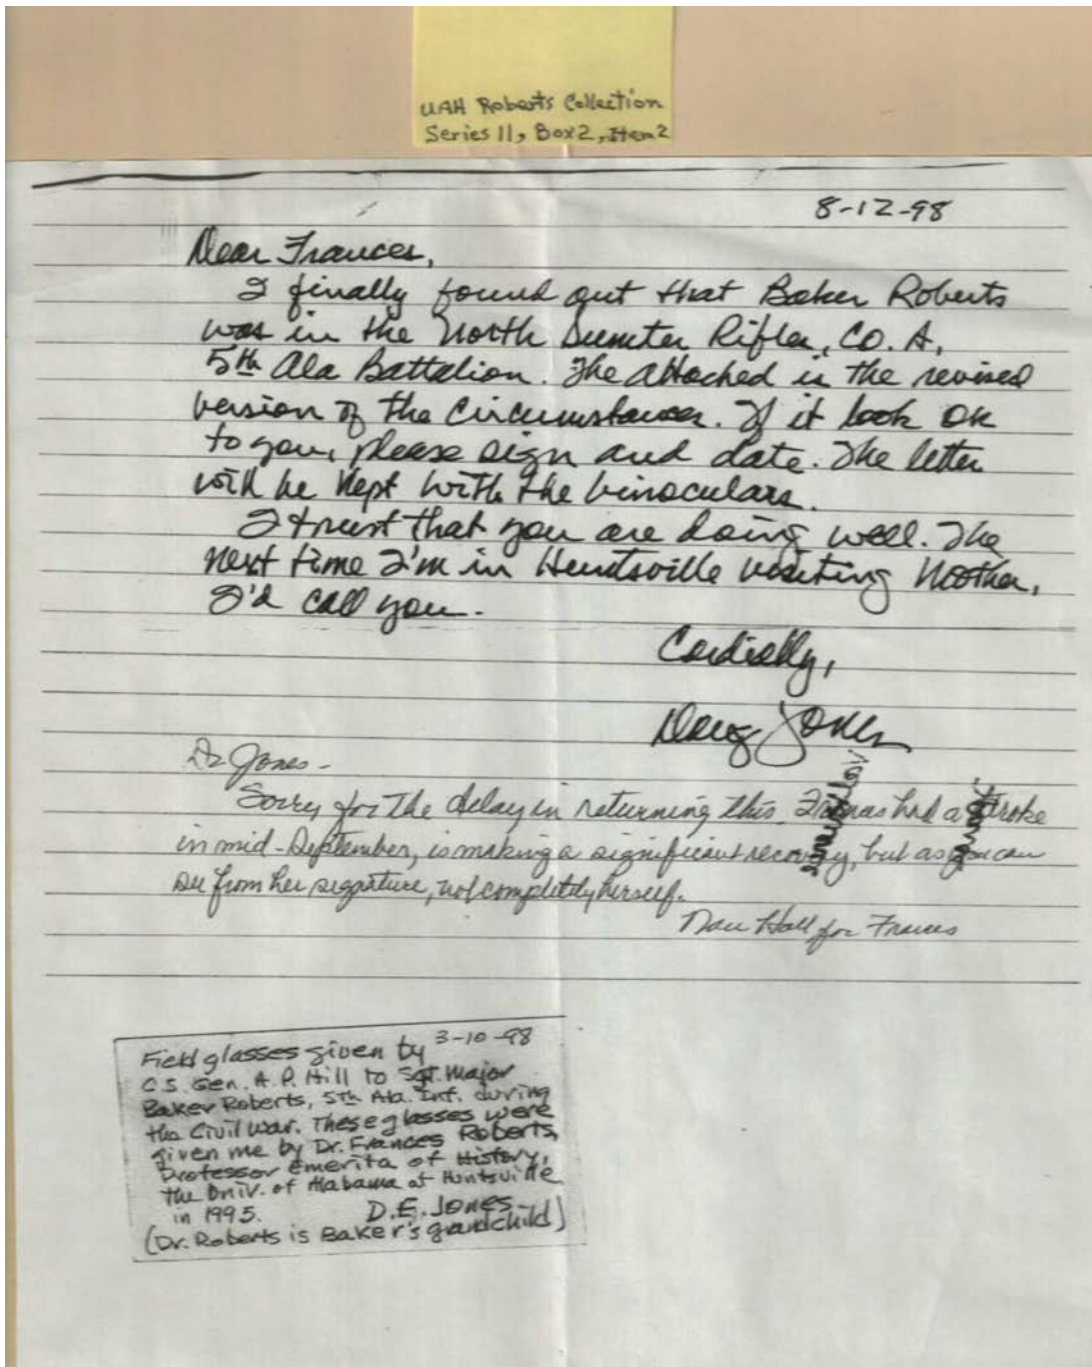 UAH Roberts Collection
Series 11, Box 2, Item 2
8-12-98
Dear Frances,
I finally found out that Baker Roberts
was in the North Sumter Rifles, CO. A,
5th Ala Battalion. The attached is the revised
version of the circumstances. If it look OK
to you, please sign and date. The letter
will be kept with the binoculars.
I trust that you are doing well. The
next time I'm in Huntsville visiting Mother,
I'd call you.
Cordially,
Doug Jones
Dr Jones -
Sorry for the delay in returning this. Frances had a stroke
in mid-September, is making a significant recovery, but as you can
see from her signature, not completely herself.
Nan Hall for Frances
3-10-98
Field glasses given by
C.S. Gen. A. P. Hill to Sgt. Major
Baker Roberts, 5th Ala. Inf. during
the Civil War. These glasses were
given me by Dr. Frances Roberts,
Professor Emerita of History,
the Univ. of Alabama at Huntsville
in 1995. D.E. Jones
(Dr. Roberts is Baker's grandchild)